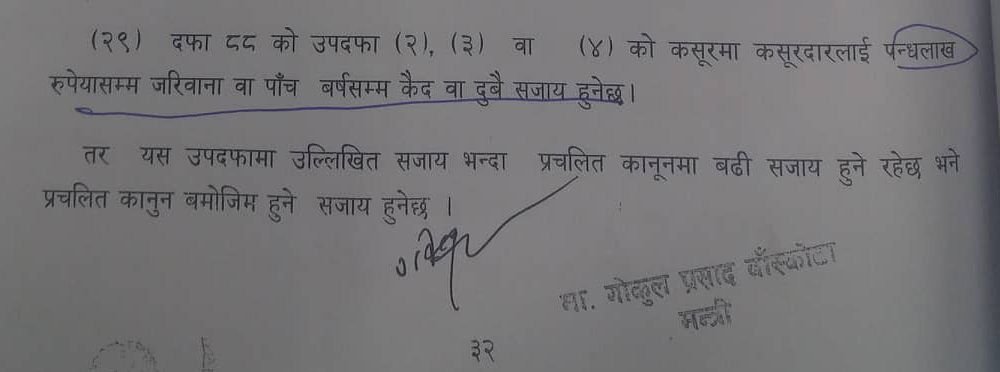 (२९) दफा ८८ को उपदफा (२), (३) वा (४) को कसूरमा कसूरदारलाई पन्ध्रलाख
रुपैयासम्म जरिवाना वा पाँच बर्षसम्म कैद वा दुबै सजाय हुनेछ।
तर यस उपदफामा उल्लिखित सजाय भन्दा प्रचलित कानूनमा बढी सजाय हुने रहेछ भने
प्रचलित कानुन बमोजिम हुने सजाय हुनेछ ।
मा. गोकुल प्रसाद बाँस्कोटा
मन्त्री
३२